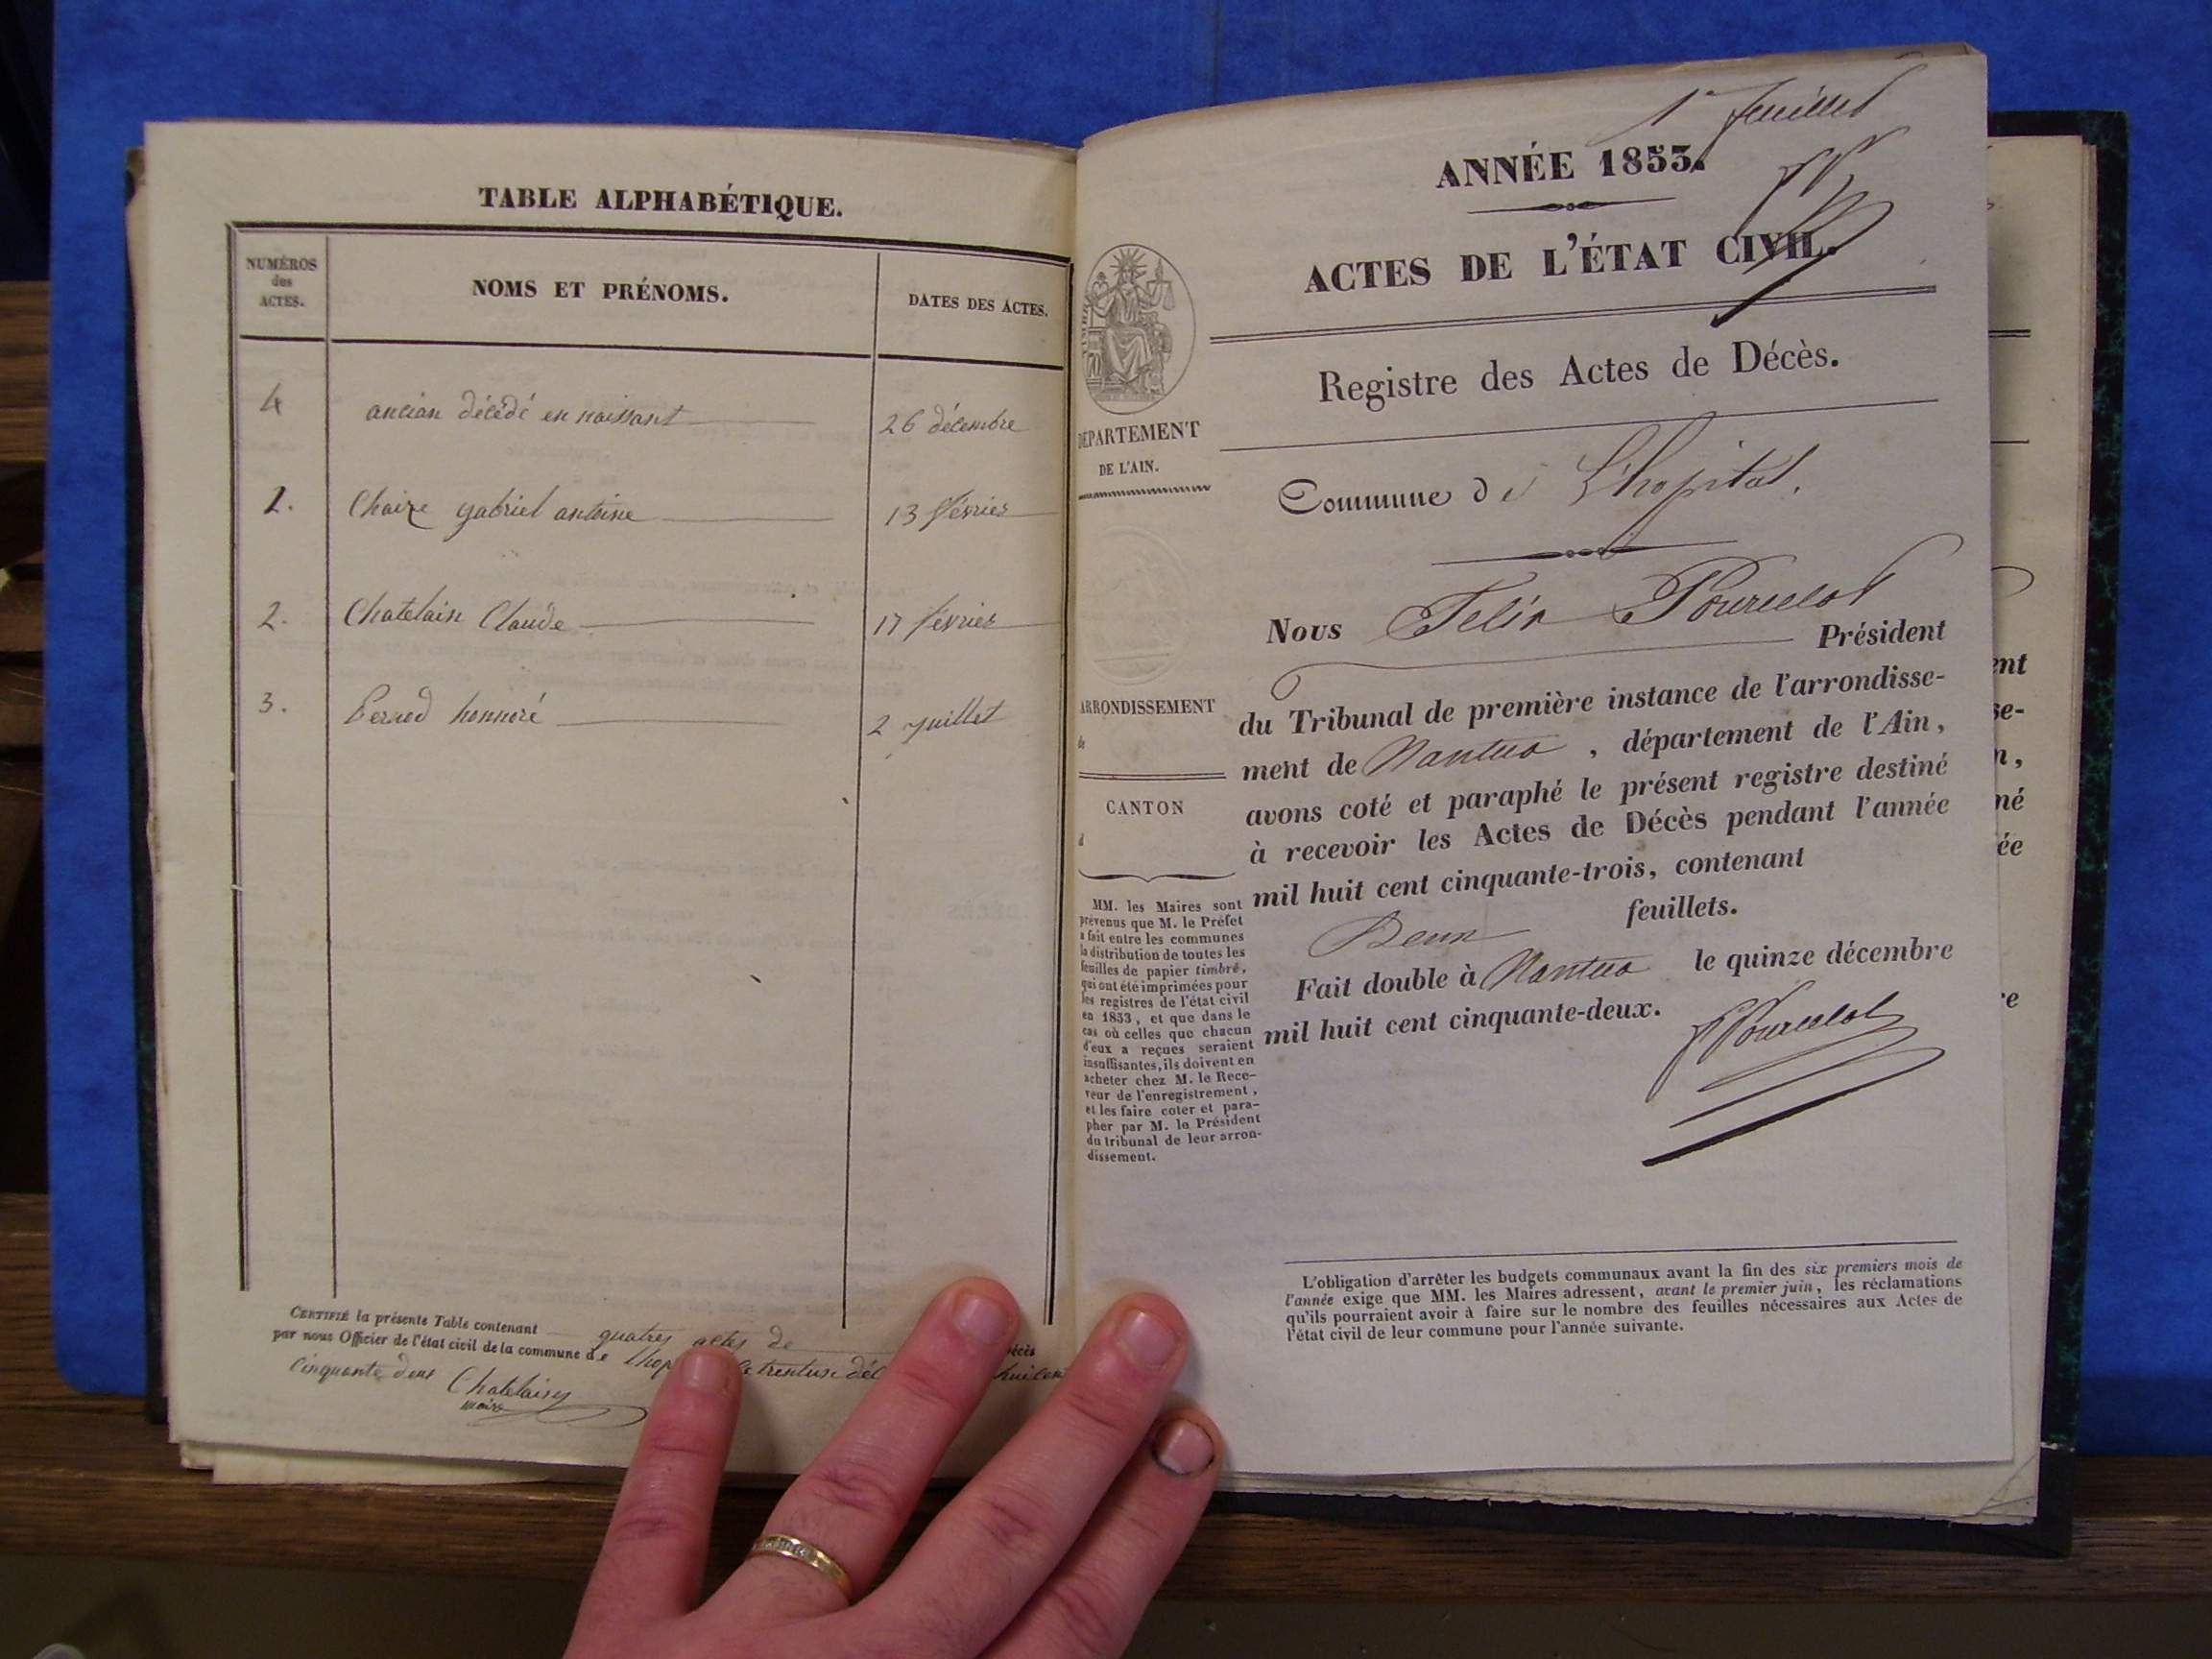 TABLE ALPHABÉTIQUE.
NUMÉROS
des
ACTES.
NOMS ET PRÉNOMS.
DATES DES ACTES.
4 ancian décédé en naissant 26 décembre
1. Chaize gabriel antoine 13 février
2. Chatelain Claude 17 février
3. Pernod honnoré 2 juillet
CERTIFIÉ la présente Table contenant quatres actes de décès
par nous Officier de l'état civil de la commune de
cinquante deux Chatelain
maire
1er feuillet
ANNÉE 1853.
ACTES DE L'ÉTAT CIVIL.
Registre des Actes de Décès.
DÉPARTEMENT
DE L'AIN.
Commune de L'hopital.
ARRONDISSEMENT
de
CANTON
d
MM. les Maires sont
prévenus que M. le Préfet
a fait entre les communes
la distribution de toutes les
feuilles de papier timbré,
qui ont été imprimées pour
les registres de l'état civil
en 1853, et que dans le
cas où celles que chacun
d'eux a reçues seraient
insuffisantes, ils doivent en
acheter chez M. le Rece-
veur de l'enregistrement,
et les faire coter et para-
pher par M. le Président
du tribunal de leur arron-
dissement.
Nous Felix Pourcelot
Président
du Tribunal de première instance de l'arrondisse-
ment de Nantua, département de l'Ain,
avons coté et paraphé le présent registre destiné
à recevoir les Actes de Décès pendant l'année
mil huit cent cinquante-trois, contenant
Deux feuillets.
Fait double à Nantua le quinze décembre
mil huit cent cinquante-deux.
Pourcelot
L'obligation d'arrêter les budgets communaux avant la fin des six premiers mois de
l'année exige que MM. les Maires adressent, avant le premier juin, les réclamations
qu'ils pourraient avoir à faire sur le nombre des feuilles nécessaires aux Actes de
l'état civil de leur commune pour l'année suivante.